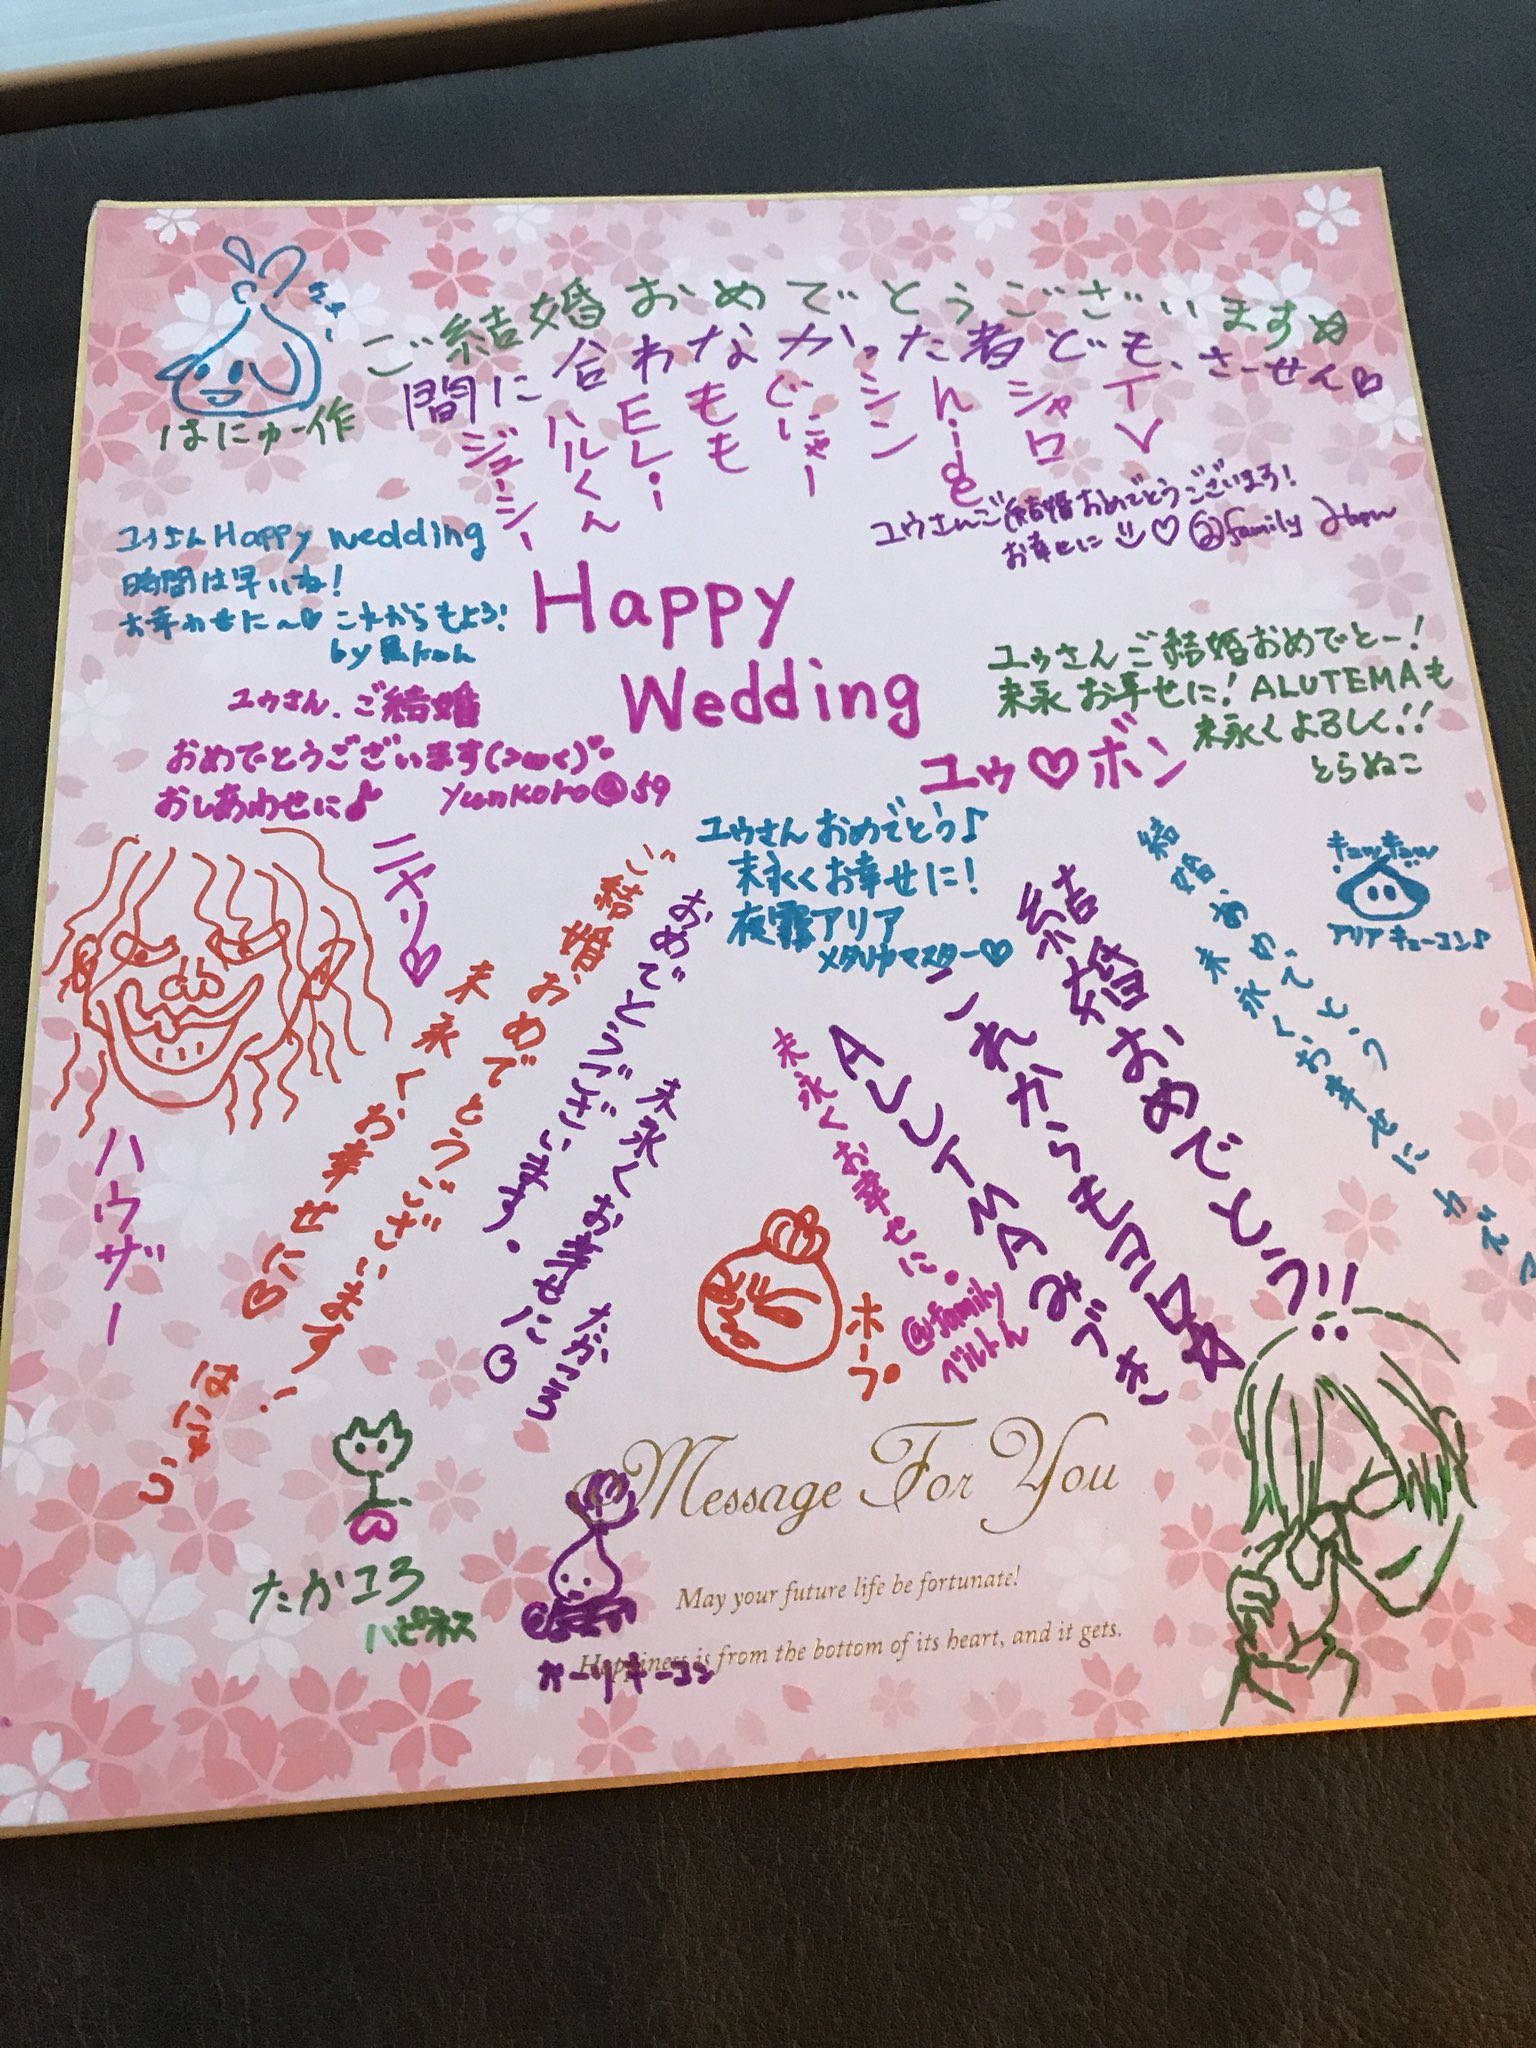 ご結婚おめでとうございます
間に合わなかった者ども、さーせん♡
はにゅー作
ジューシー
ハルくん
ELei
もも
ぐにゃー
シン
hide
シャロ
イン
ユウさん Happy wedding
時間は早いね!
お幸わせに〜♡ これからもよろ!
by
ユウさんご結婚おめでとうございまろ!
お幸せに ♡ @family
Happy
Wedding
ユウ♡ボン
ユゥさんご結婚おめでとー!
末永お幸せに! ALUTEMAも
末永くよろしく!!
とらぬこ
ユウさん、ご結婚
おめでとうございます(>ω<)
おしあわせに♪ Yunkoro@59
ニヤリ♡
ハウザー
ユウさんおめでとう♪
末永くお幸せに!
夜霧アリア
メタルカマスター♡
ご結婚おめでとうございます!
末永くお幸せに♡
おめでとうございます。
末永くお幸せに
たかころ
末永くお幸せに。
@family
ベルトん
結婚おめでとう!!
これからもヨロ☆
みづき
結婚おめでとう
末永くお幸せに
キョンキョン
アリアキョーコン♪
ホラ。
たかころ
ハピネス
Message For You
May your future life be fortunate!
Happiness is from the bottom of its heart, and it gets.